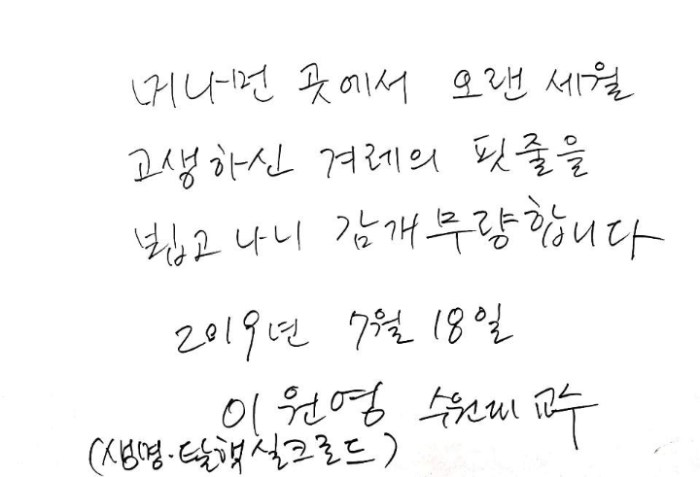 머나먼 곳에서 오랜 세월
고생하신 겨레의 핏줄을
뵙고 나니 감개무량합니다
2019년 7월 18일
이원영 수원대 교수
(생명·탈핵 실크로드)